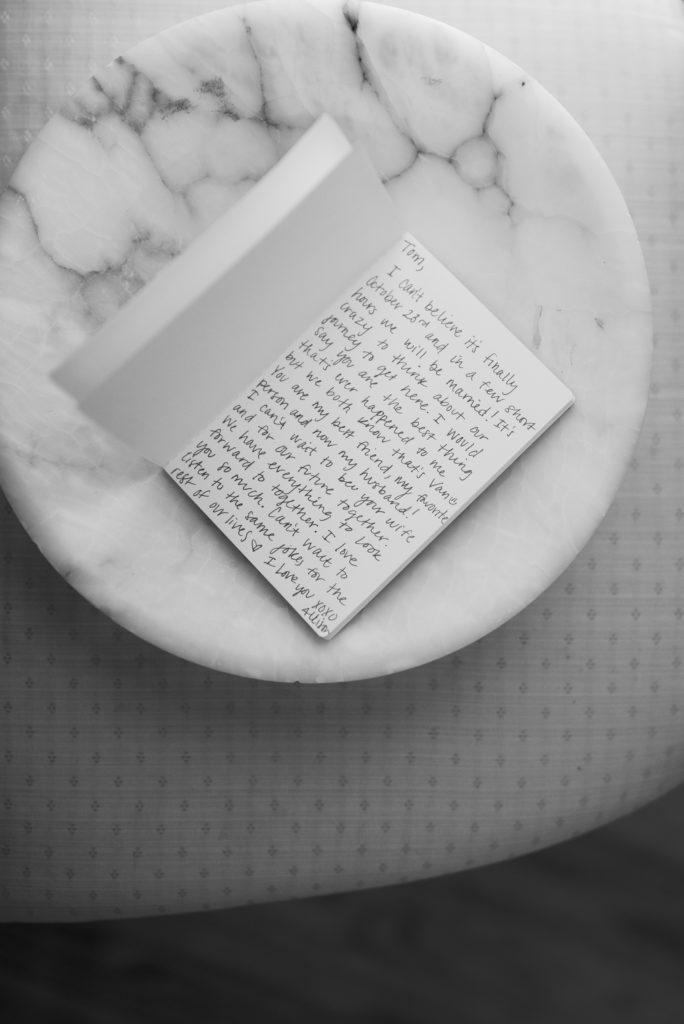 Tom,
I can't believe it's finally
October 23rd and in a few short
hours we will be married! It's
crazy to think about our
journey to get here. I would
say you are the best thing
that's ever happened to me
but we both know that's Van
You are my best friend, my favorite
person and now my husband!
I can't wait to be your wife
and for our future together.
We have everything to look
forward to together. I love
you so much. Can't wait to
listen to the same jokes for the
rest of our lives ♡
I love you xoxo
Allison